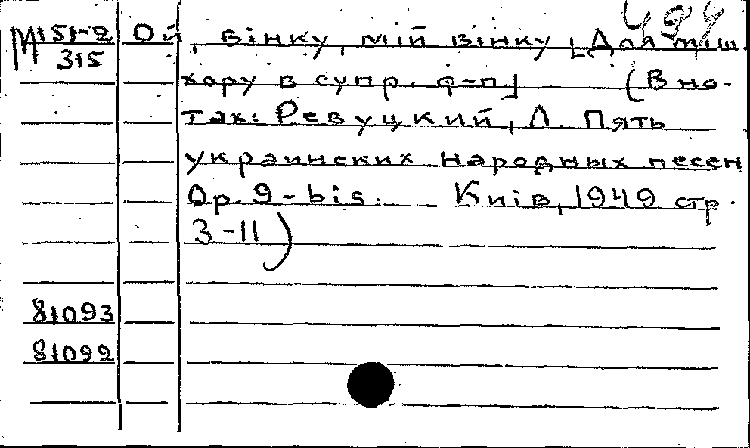 494
М151-2 Ой, вінку, мій вінку [Для міш.
315 хору в супр. ф-п] (В но-
тах: Ревуцкий, Л. Пять
украинских народных песен
Op. 9-bis. Київ, 1949 стр.
3-11)
81093
81099